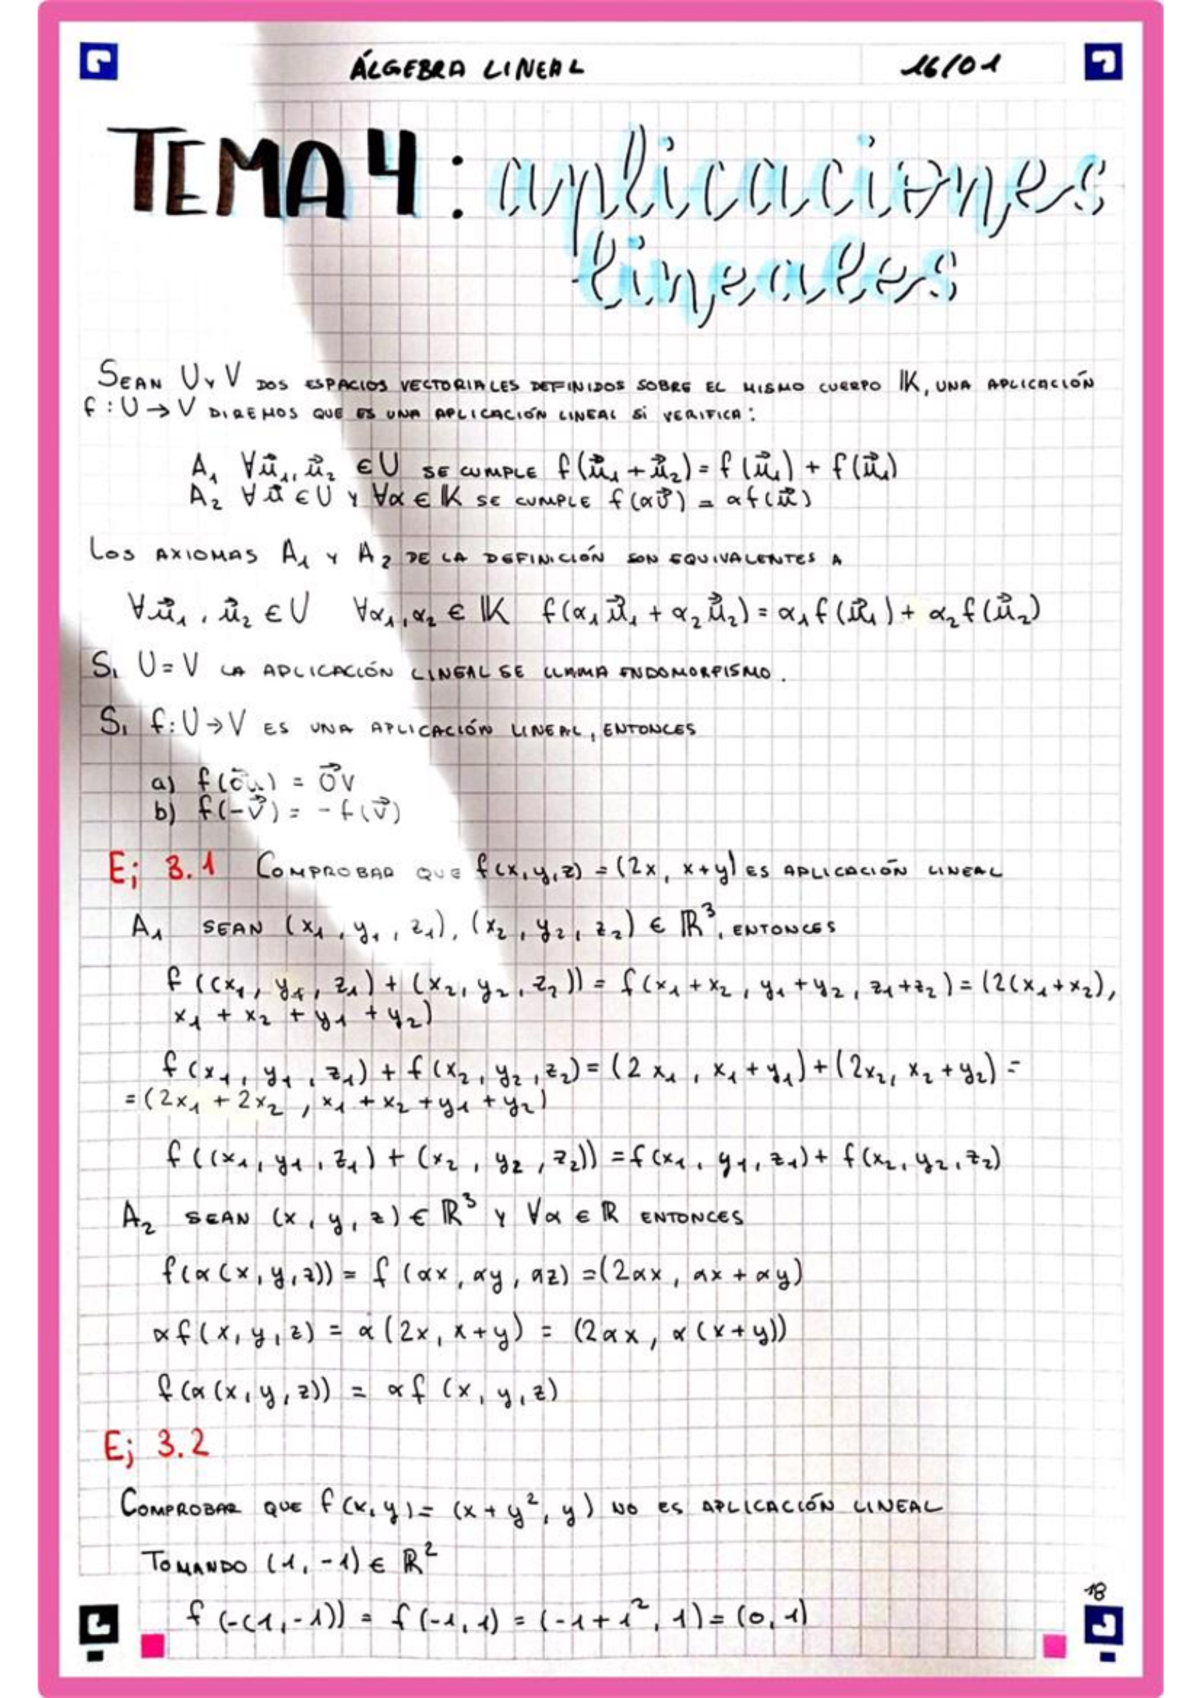 ÁLGEBRA LINEAL 16/01
TEMA 4: aplicaciones
lineales
SEAN U Y V DOS ESPACIOS VECTORIALES DEFINIDOS SOBRE EL MISMO CUERPO 𝕂, UNA APLICACIÓN
f: U → V DIREMOS QUE ES UNA APLICACIÓN LINEAL Si VERIFICA:
A₁ ∀u⃗₁, u⃗₂ ∈ U SE CUMPLE f(u⃗₁ + u⃗₂) = f(u⃗₁) + f(u⃗₁)
A₂ ∀u⃗ ∈ U Y ∀α ∈ 𝕂 SE CUMPLE f(αv⃗) = αf(u⃗)
LOS AXIOMAS A₁ Y A₂ DE LA DEFINICIÓN SON EQUIVALENTES A
∀u⃗₁, u⃗₂ ∈ U ∀α₁, α₂ ∈ 𝕂 f(α₁u⃗₁ + α₂u⃗₂) = α₁f(u⃗₁) + α₂f(u⃗₂)
Si U = V LA APLICACIÓN LINEAL SE LLAMA ENDOMORFISMO.
Si f: U → V ES UNA APLICACIÓN LINEAL, ENTONCES
a) f(0⃗u) = 0⃗v
b) f(-v⃗) = -f(v⃗)
Ej 3.1 COMPROBAR QUE f(x,y,z) = (2x, x+y) ES APLICACIÓN LINEAL
A₁ SEAN (x₁, y₁, z₁), (x₂, y₂, z₂) ∈ ℝ³, ENTONCES
f((x₁, y₁, z₁) + (x₂, y₂, z₂)) = f(x₁+x₂, y₁+y₂, z₁+z₂) = (2(x₁+x₂),
x₁ + x₂ + y₁ + y₂)
f(x₁, y₁, z₁) + f(x₂, y₂, z₂) = (2x₁, x₁+y₁) + (2x₂, x₂+y₂) =
= (2x₁ + 2x₂, x₁ + x₂ + y₁ + y₂)
f((x₁, y₁, z₁) + (x₂, y₂, z₂)) = f(x₁, y₁, z₁) + f(x₂, y₂, z₂)
A₂ SEAN (x, y, z) ∈ ℝ³ Y ∀α ∈ ℝ ENTONCES
f(α(x,y,z)) = f(αx, αy, αz) = (2αx, αx + αy)
αf(x,y,z) = α(2x, x+y) = (2αx, α(x+y))
f(α(x,y,z)) = αf(x,y,z)
Ej 3.2
COMPROBAR QUE f(x,y) = (x+y², y) NO ES APLICACIÓN LINEAL
TOMANDO (1, -1) ∈ ℝ²
f(-(1,-1)) = f(-1,1) = (-1+1², 1) = (0,1)
18